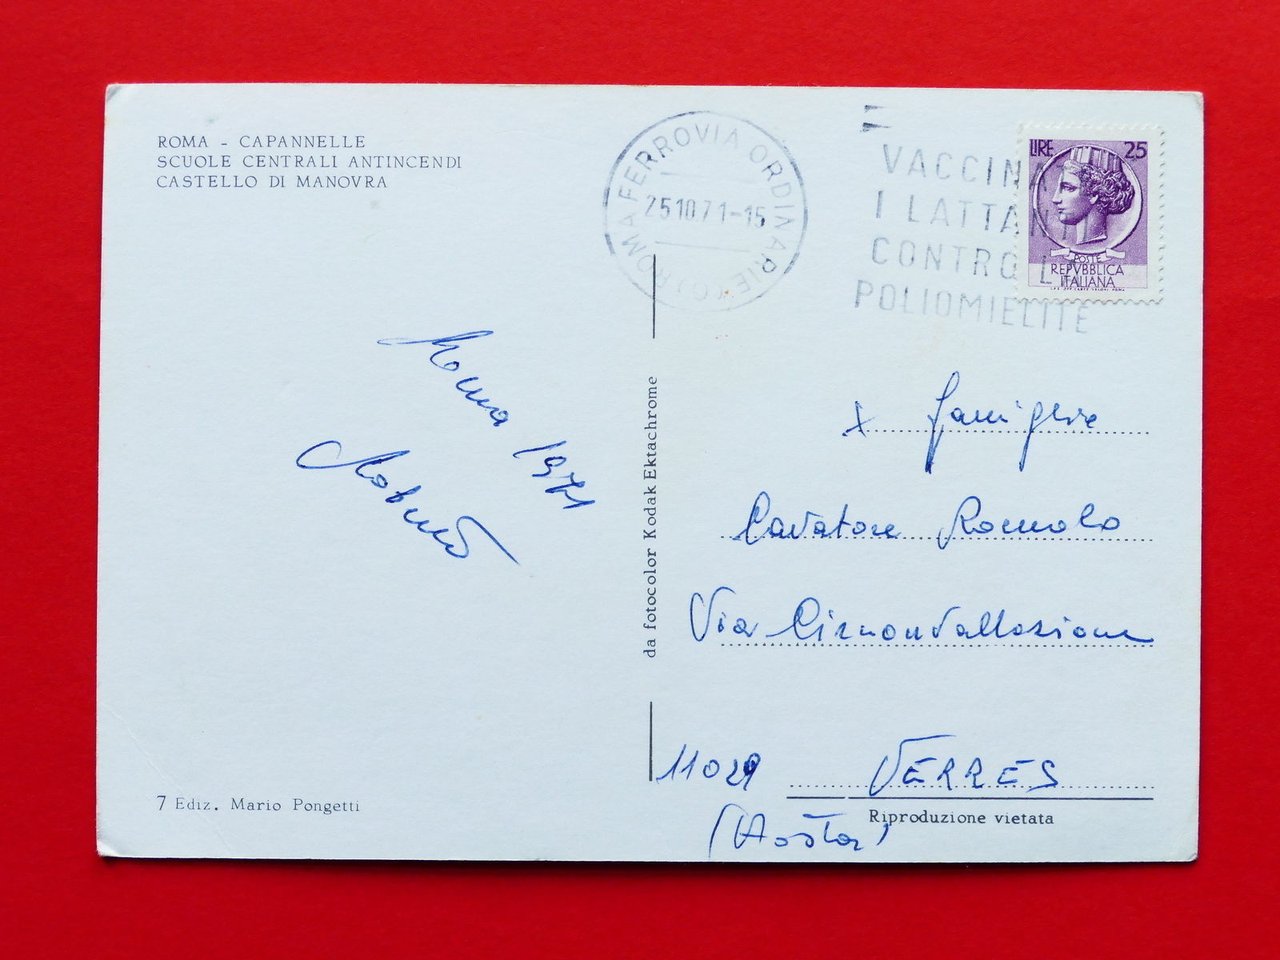 ROMA - CAPANNELLE
SCUOLE CENTRALI ANTINCENDI
CASTELLO DI MANOVRA
ROMA FERROVIA ORDINARIE
25 10 71-15
VACCINA
I LATTANTI
CONTRO LA
POLIOMIELITE
LIRE 25
POSTE
REPVBBLICA
ITALIANA
Roma 1971
Roberto
da fotocolor Kodak Ektachrome
X famiglia
Cavatore Romolo
Via Circonvallazione
11029 VERRES
(Aosta)
7 Ediz. Mario Pongetti
Riproduzione vietata